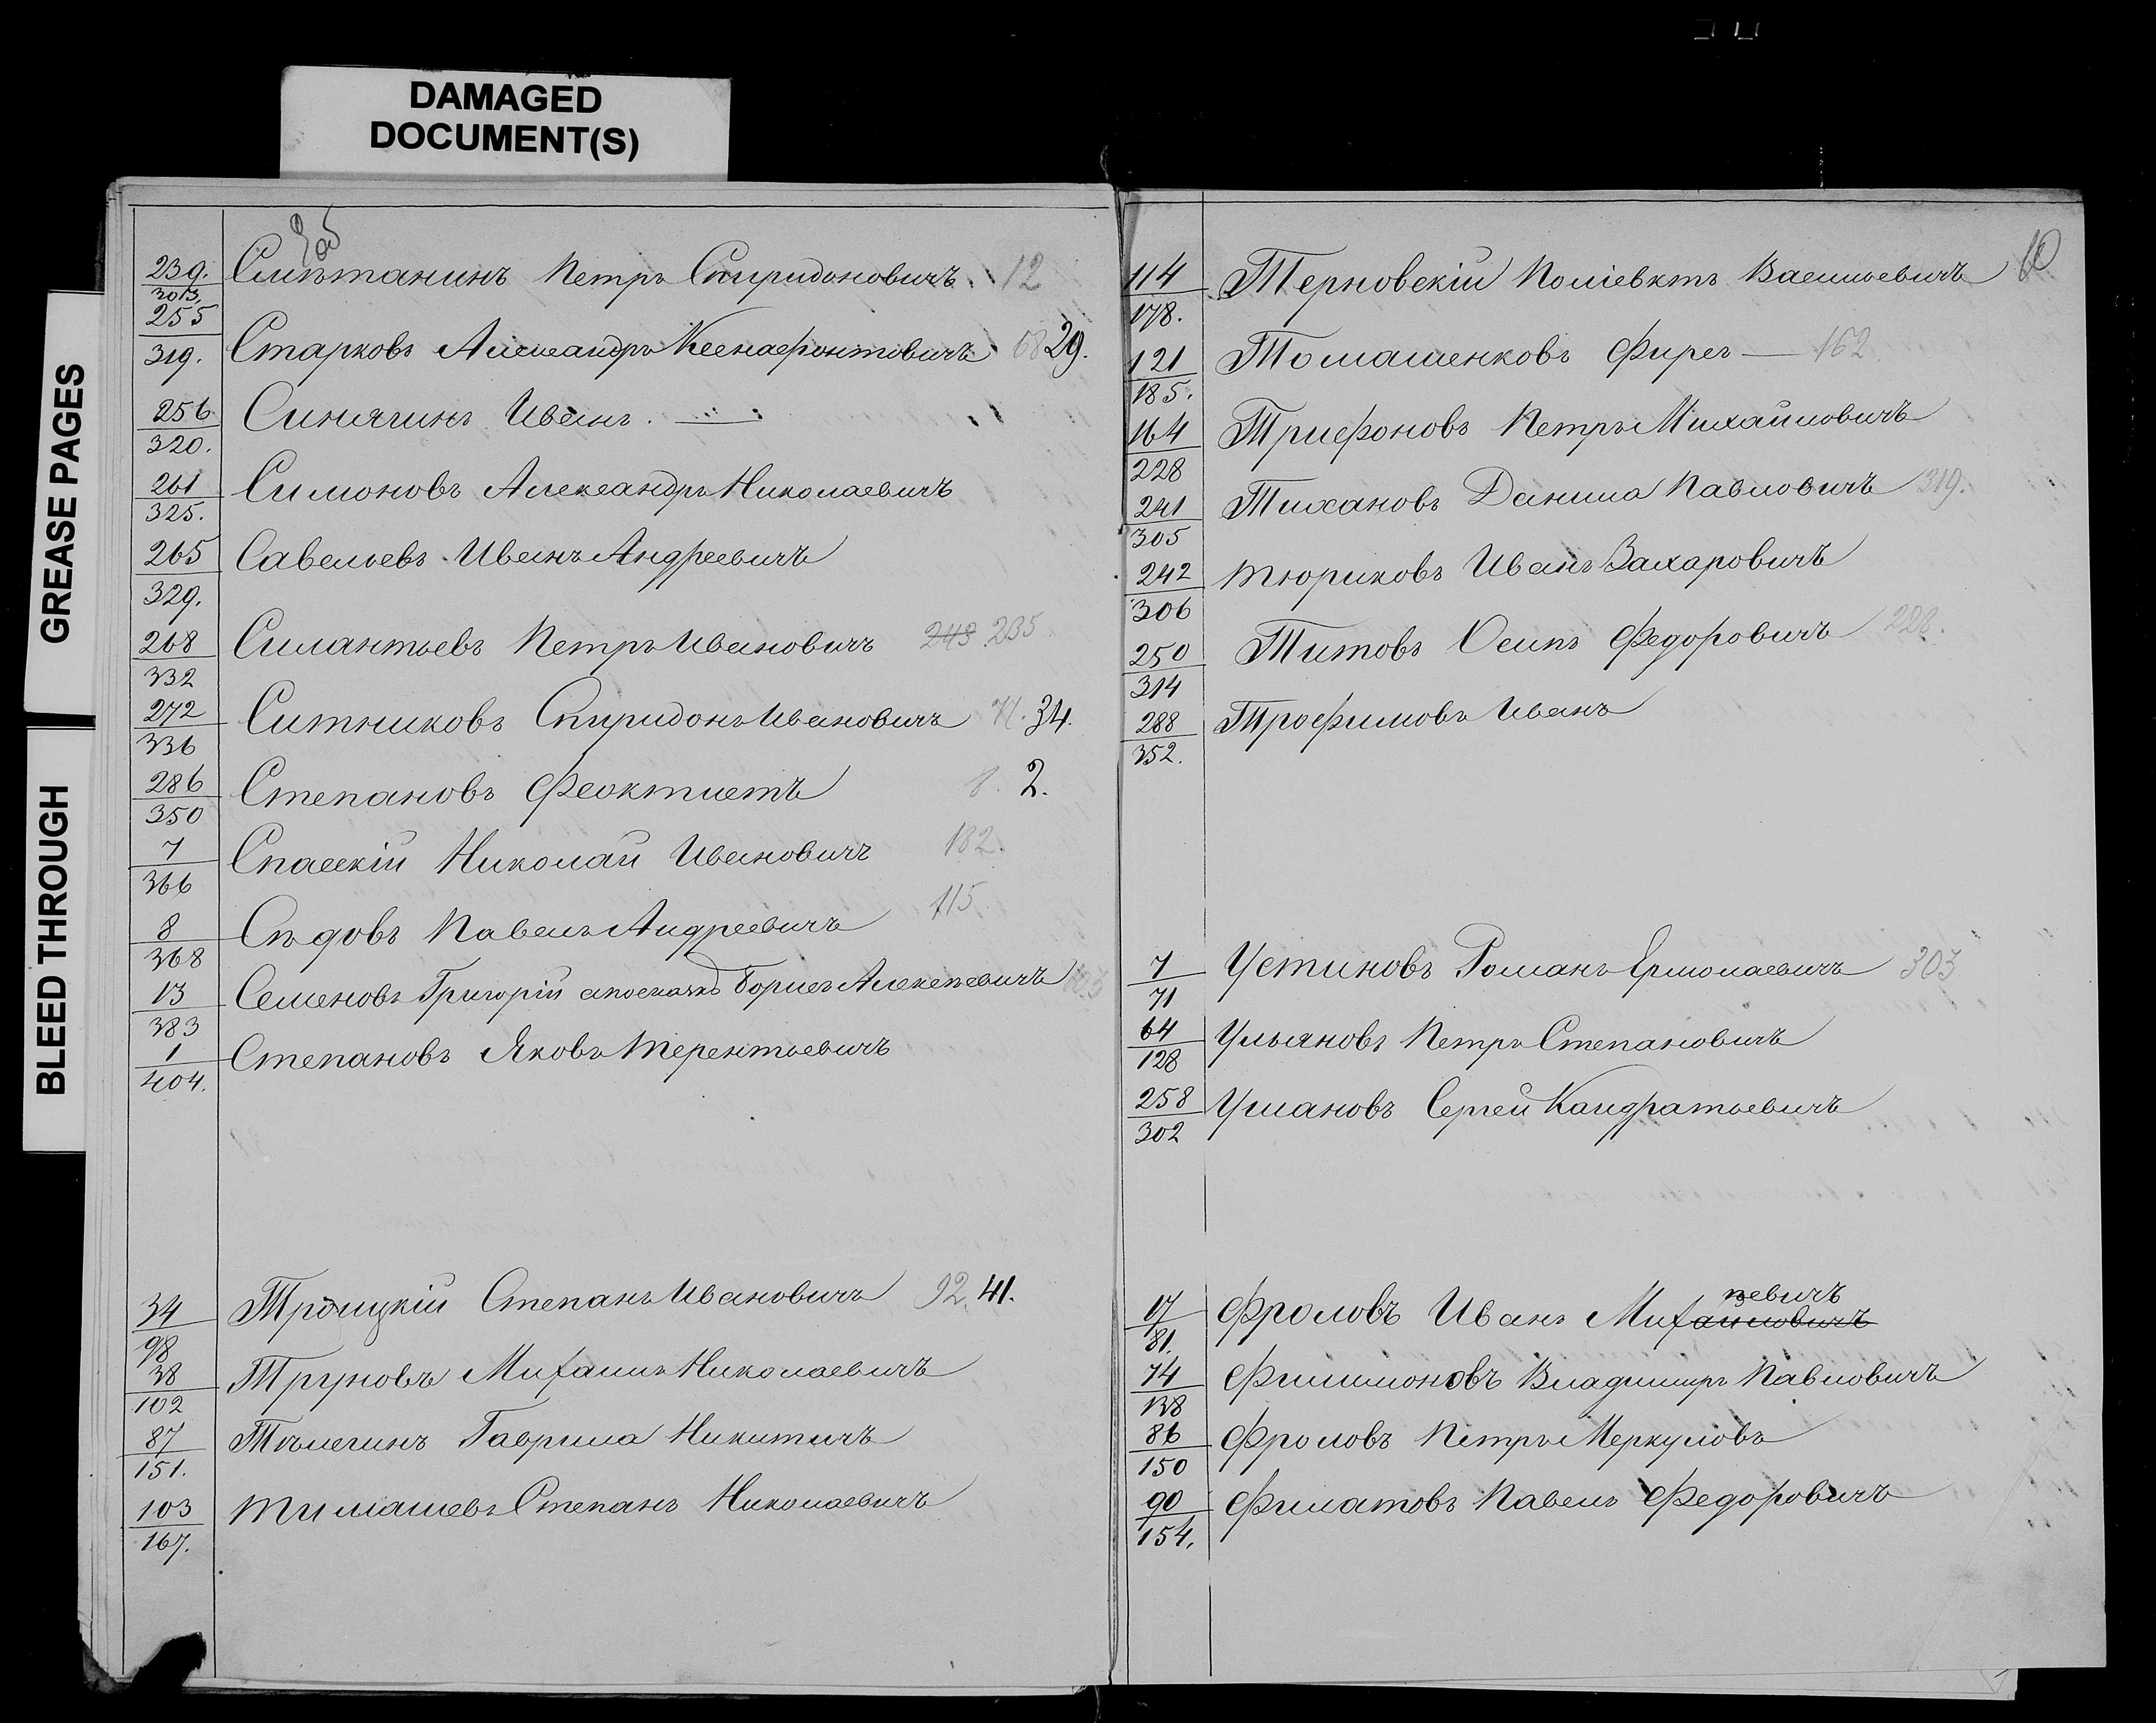 DAMAGED
DOCUMENT(S)
GREASE PAGES
BLEED THROUGH
239. Смѣтанинъ Петръ Спиридоновичъ. 12
303.
255
319. Старковъ Александръ Ксенофонтовичъ 68 29.
256 Синягинъ Иванъ. —
320.
261 Симоновъ Александръ Николаевичъ
325.
265 Савельевъ Иванъ Андреевичъ
329.
268 Силантьевъ Петръ Ивановичъ 248. 235
332
272 Ситниковъ Спиридонъ Ивановичъ 71. 34.
336
286 Степановъ Феоктистъ 8. 2.
350
7 Спасскій Николай Ивановичъ 182.
366
8 Сѣдовъ Павелъ Андреевичъ 115
368
13 Семеновъ Григорій Борисъ Алексѣевичъ
383
1 Степановъ Яковъ Терентьевичъ
404.
34 Троицкій Степанъ Ивановичъ 92. 41.
98
38 Труновъ Михаилъ Николаевичъ
102
87 Тѣлегинъ Гаврила Никитичъ
151.
103 Тимашевъ Степанъ Николаевичъ
167.
10
114 Терновскій Поліевктъ Васильевичъ
178.
121 Томашенковъ Фирсъ — 162
185.
164 Трифоновъ Петръ Михайловичъ
228
241 Тихановъ Данила Павловичъ 319.
305
242 Тюриковъ Иванъ Захаровичъ
306
250 Титовъ Осипъ Федоровичъ 228.
314
288 Трофимовъ Иванъ
352.
7 Устиновъ Романъ Ермолаевичъ 303
71
64 Ульяновъ Петръ Степановичъ
128
258 Умановъ Сергей Кандратьевичъ
302
17 Фроловъ Иванъ Михайловичъ
81.
74 Филимоновъ Владимиръ Павловичъ
138
86 Фроловъ Петръ Меркуловъ
150
90 Филатовъ Павелъ Федоровичъ
154.